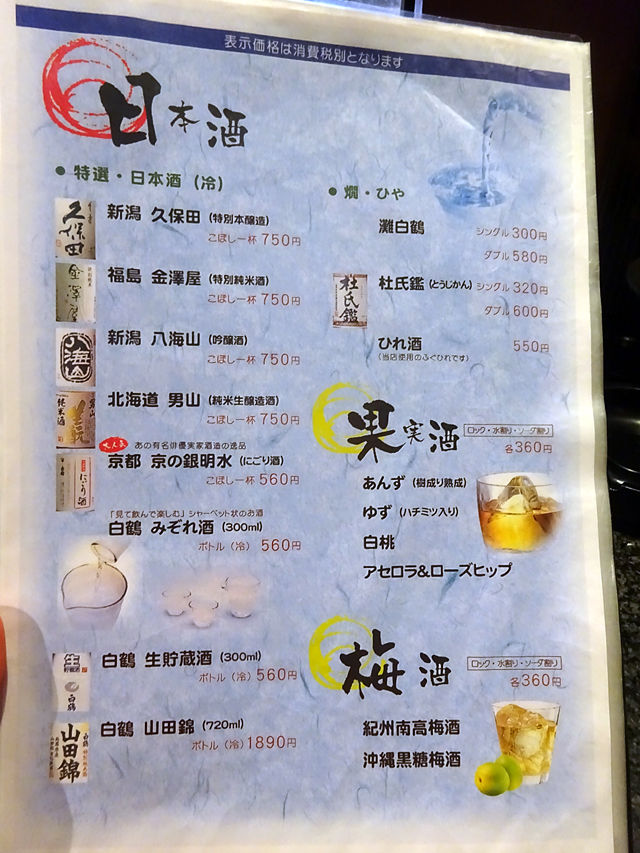 表示価格は消費税別となります
日本酒
● 特選・日本酒（冷）
久保田
新潟 久保田（特別本醸造）
こぼし一杯 750円
金澤屋
福島 金澤屋（特別純米酒）
こぼし一杯 750円
八海山
新潟 八海山（吟醸酒）
こぼし一杯 750円
男山
純米酒
北海道 男山（純米生醸造酒）
こぼし一杯 750円
大人気 あの有名俳優実家酒造の逸品
にごり酒
京都 京の銀明水（にごり酒）
こぼし一杯 560円
「見て飲んで楽しむ」シャーベット状のお酒
白鶴 みぞれ酒（300ml）
ボトル（冷）560円
生
白鶴
白鶴 生貯蔵酒（300ml）
ボトル（冷）560円
白鶴
山田錦
白鶴 山田錦（720ml）
ボトル（冷）1890円
● 燗・ひや
灘白鶴 シングル 300円
ダブル 580円
杜氏鑑
杜氏鑑（とうじかん）シングル 320円
ダブル 600円
ひれ酒 550円
（当店使用のふぐひれです）
果実酒
ロック・水割り・ソーダ割り
各360円
あんず（樹成り熟成）
ゆず（ハチミツ入り）
白桃
アセロラ&ローズヒップ
梅酒
ロック・水割り・ソーダ割り
各360円
紀州南高梅酒
沖縄黒糖梅酒